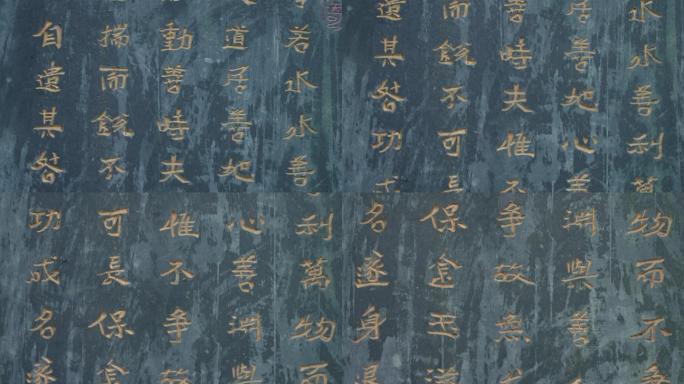 若水水善
道居善地
動善時夫
揣而銳不
自遺其咎
水水善利
居善地心
善時夫惟
而銳不可
遺其咎功
利萬物而
心善淵與
惟不爭故
可長保金
功成名遂
物而不
淵與善
爭故無
保金玉滿
名遂身退